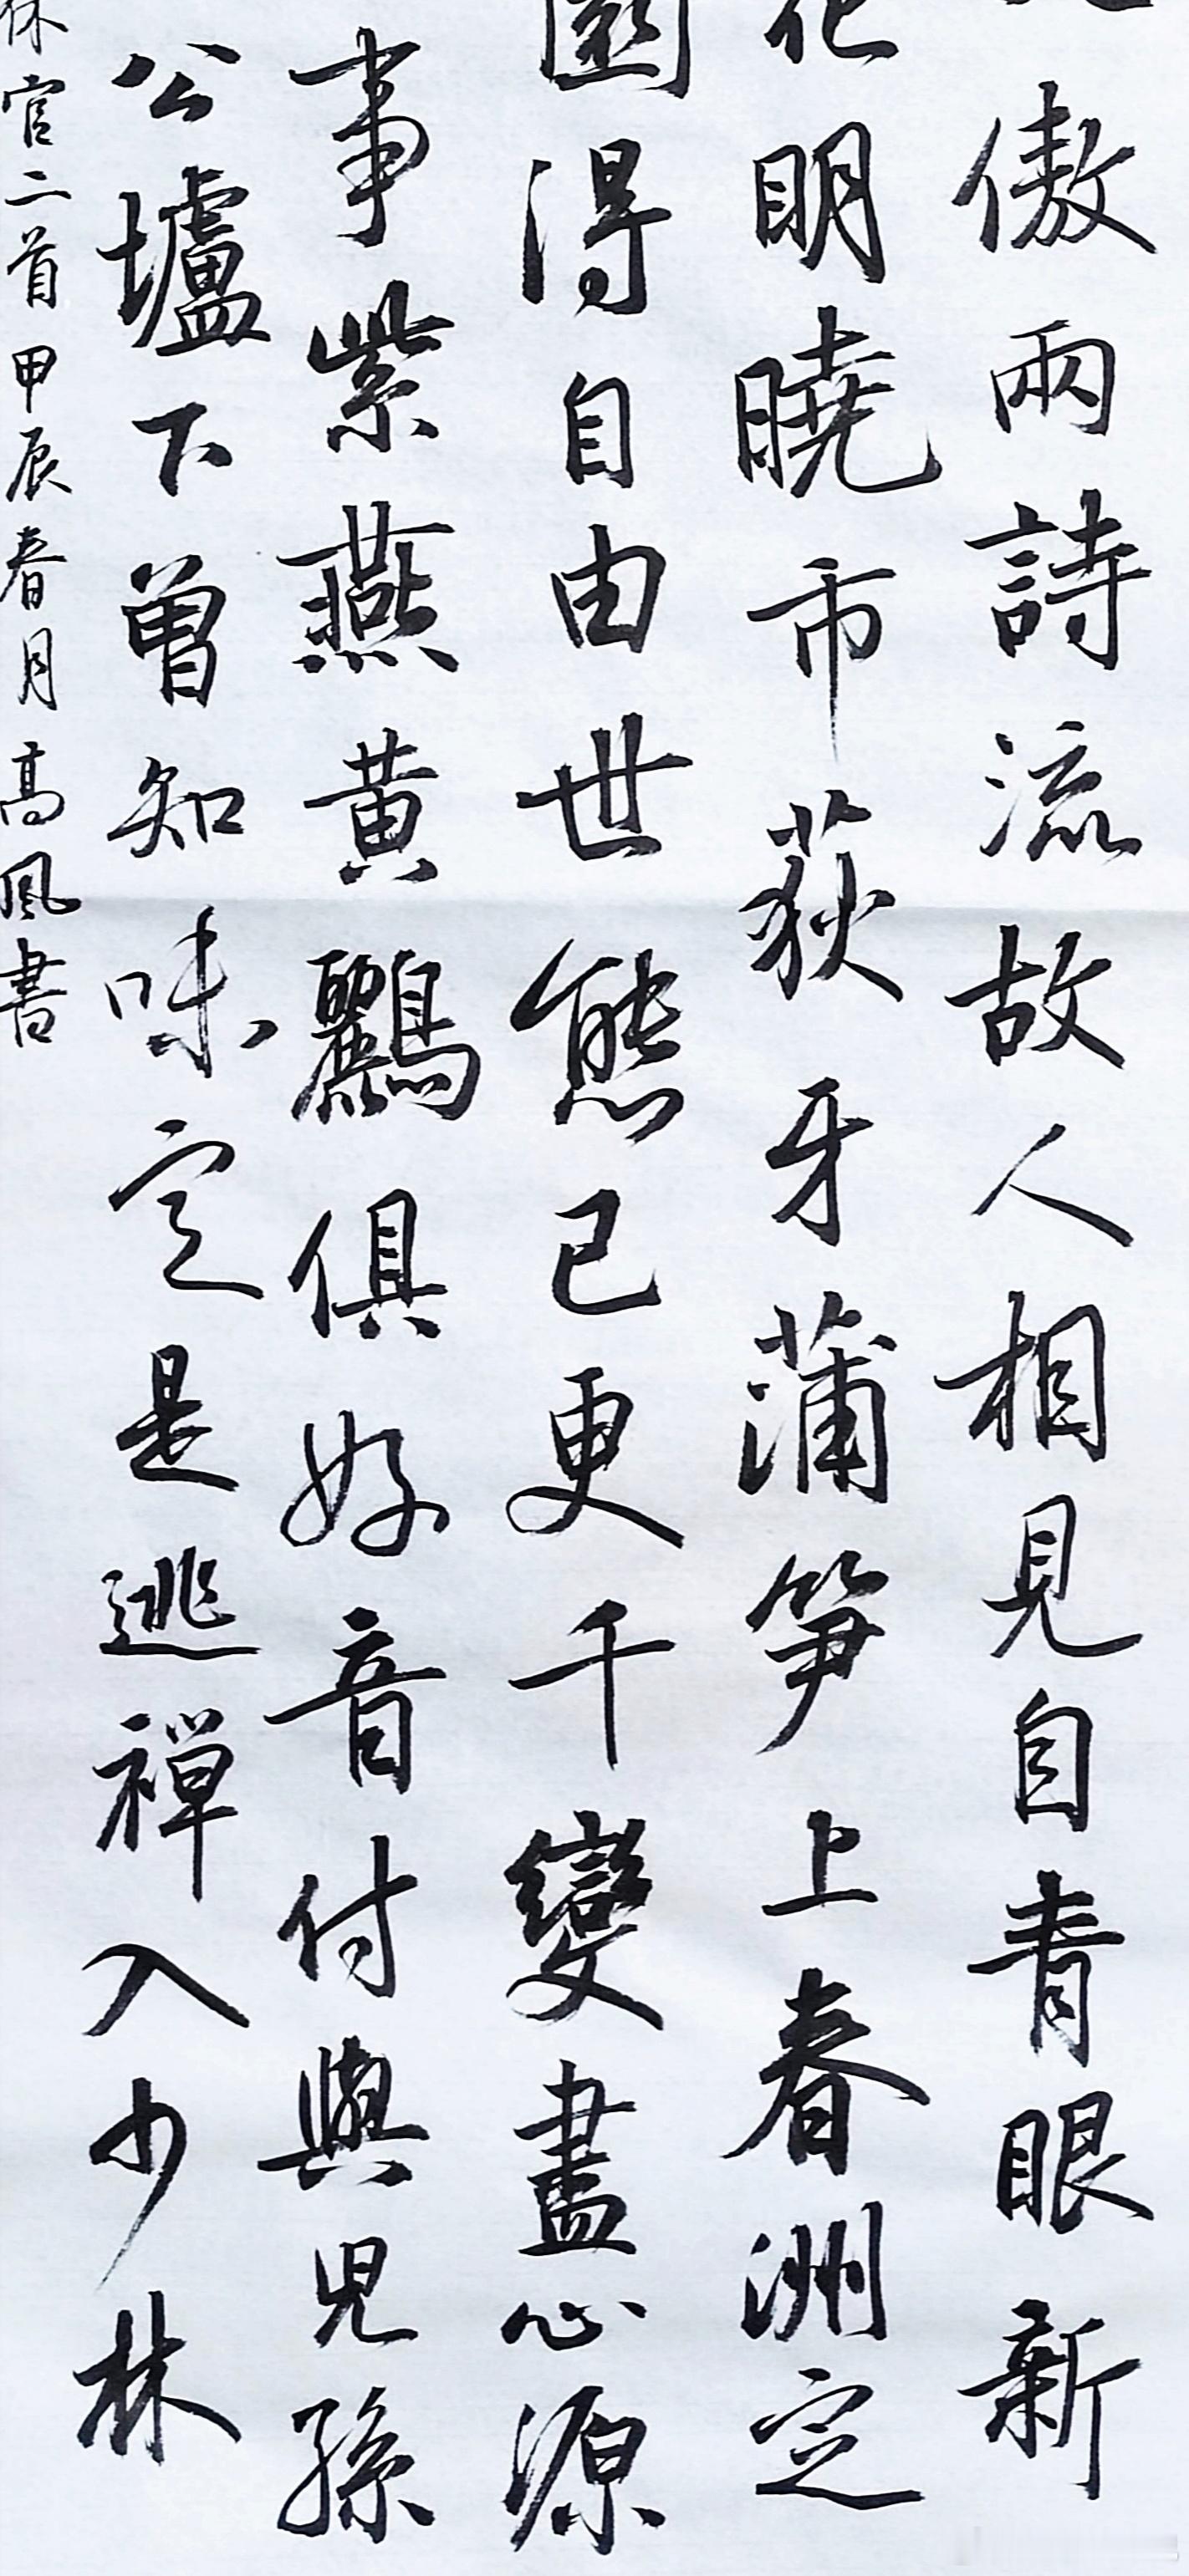 傲兩詩流故人相見自青眼新
花明曉市荻牙蒲笋上春洲定
園得自由世態已更千變盡心源
事紫燕黃鸝俱好音付與兒孫
公壚下曾知味定是逃禪入少林
休官二首甲辰春月高風書